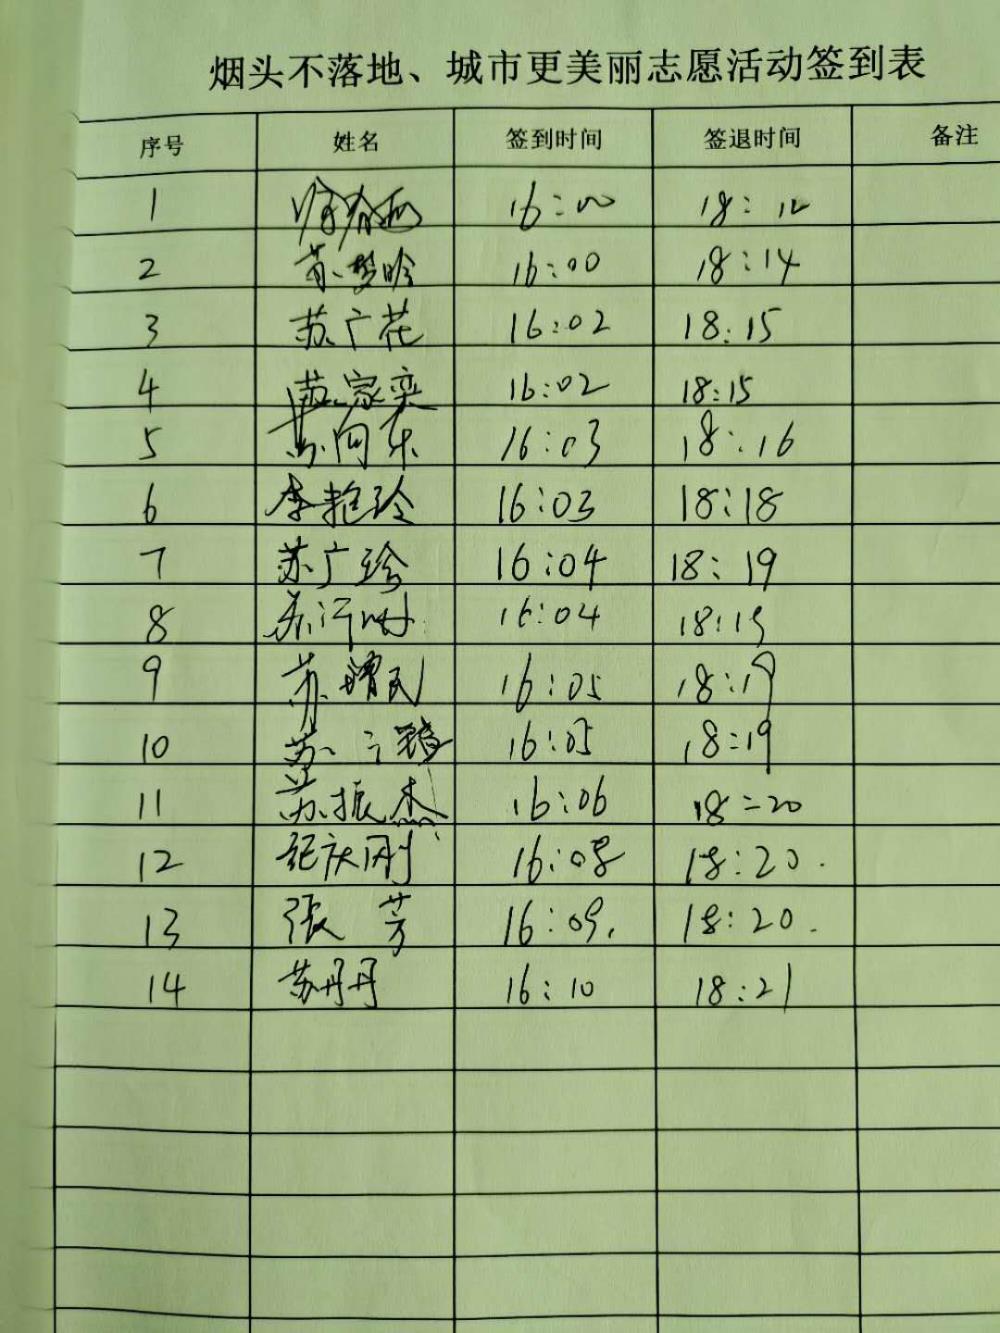 烟头不落地、城市更美丽志愿活动签到表
序号 姓名 签到时间 签退时间 备注
1 16:00 18:12
2 苏梦晗 16:00 18:14
3 苏广花 16:02 18:15
4 苏家奕 16:02 18:15
5 苏向东 16:03 18:16
6 李艳玲 16:03 18:18
7 苏广珍 16:04 18:19
8 16:04 18:19
9 苏增民 16:05 18:19
10 苏 16:05 18:19
11 苏振杰 16:06 18:20
12 纪庆刚 16:08 18:20.
13 張芳 16:09. 18:20.
14 苏丹丹 16:10 18:21